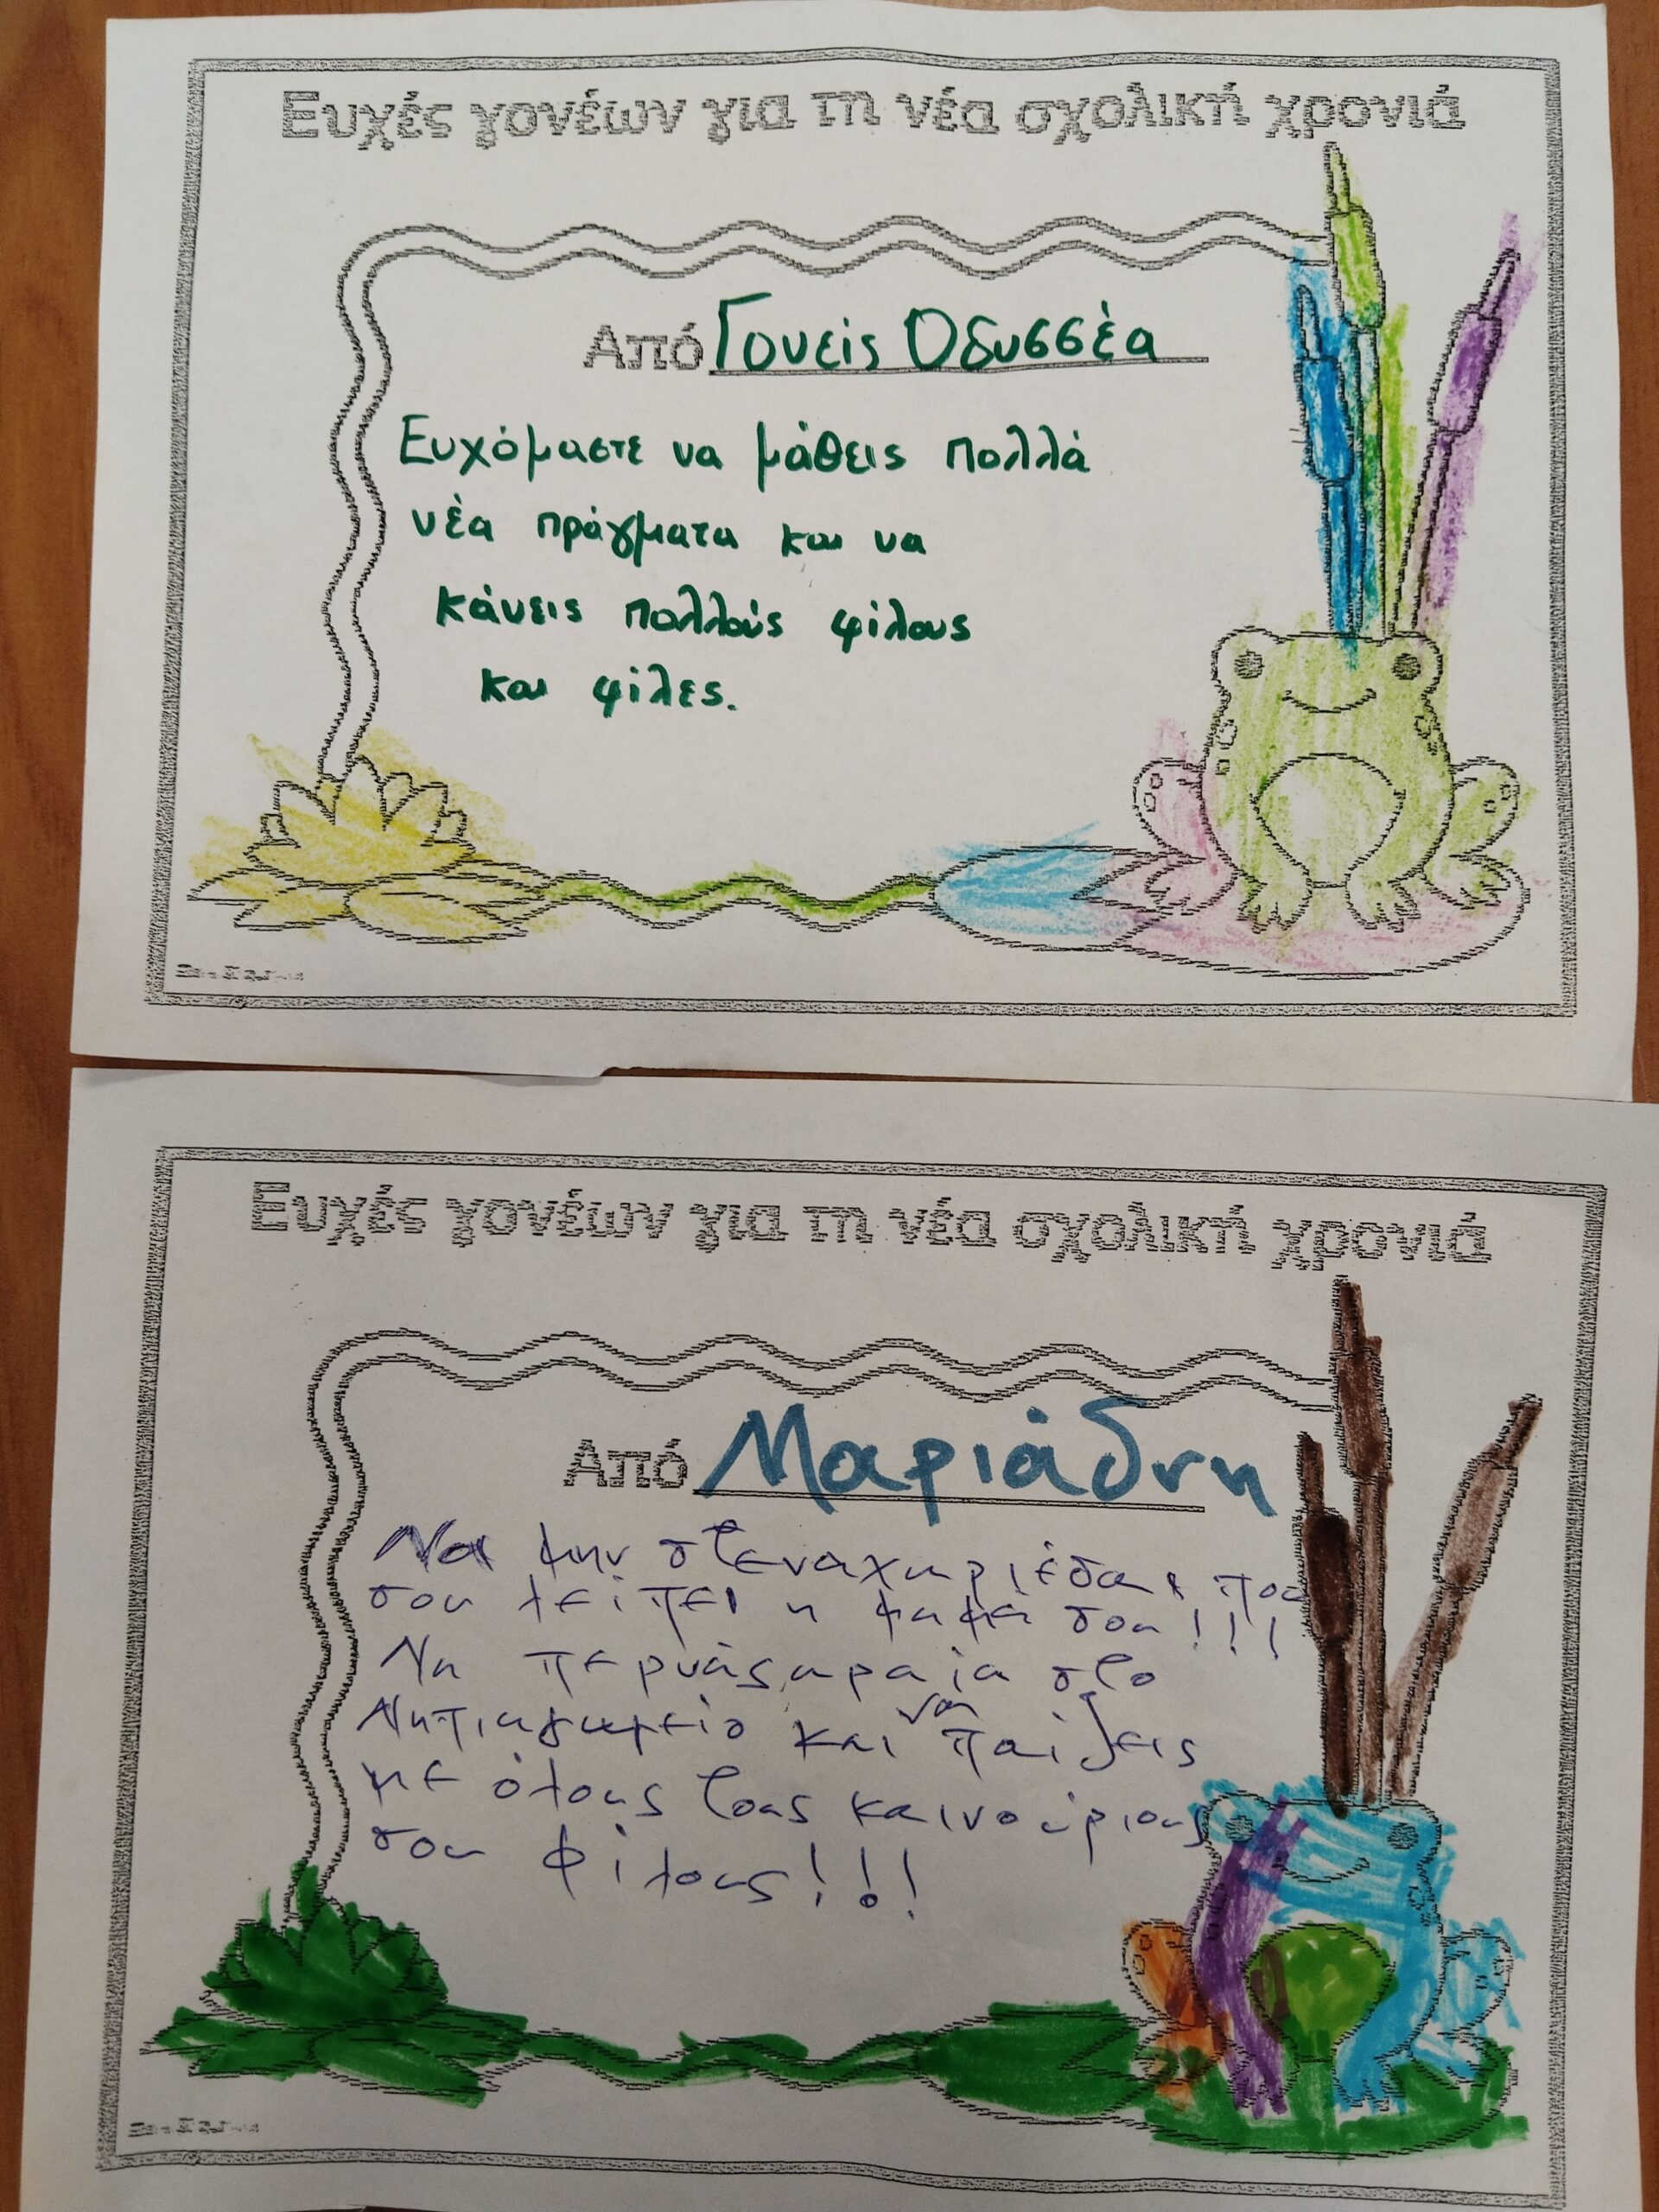 Ευχές γονέων για τη νέα σχολική χρονιά
Από Γονείς Οδυσσέα
Ευχόμαστε να μάθεις πολλά
νέα πράγματα και να
κάνεις πολλούς φίλους
και φίλες.
Ευχές γονέων για τη νέα σχολική χρονιά
Από Μαριάδνη
Να μην στεναχωριέσαι που
σου λείπει η μαμά σου!!!
Να περνάς ωραία στο
Νηπιαγωγείο και να παίζεις
με όλους τους καινούριους
σου φίλους!!!